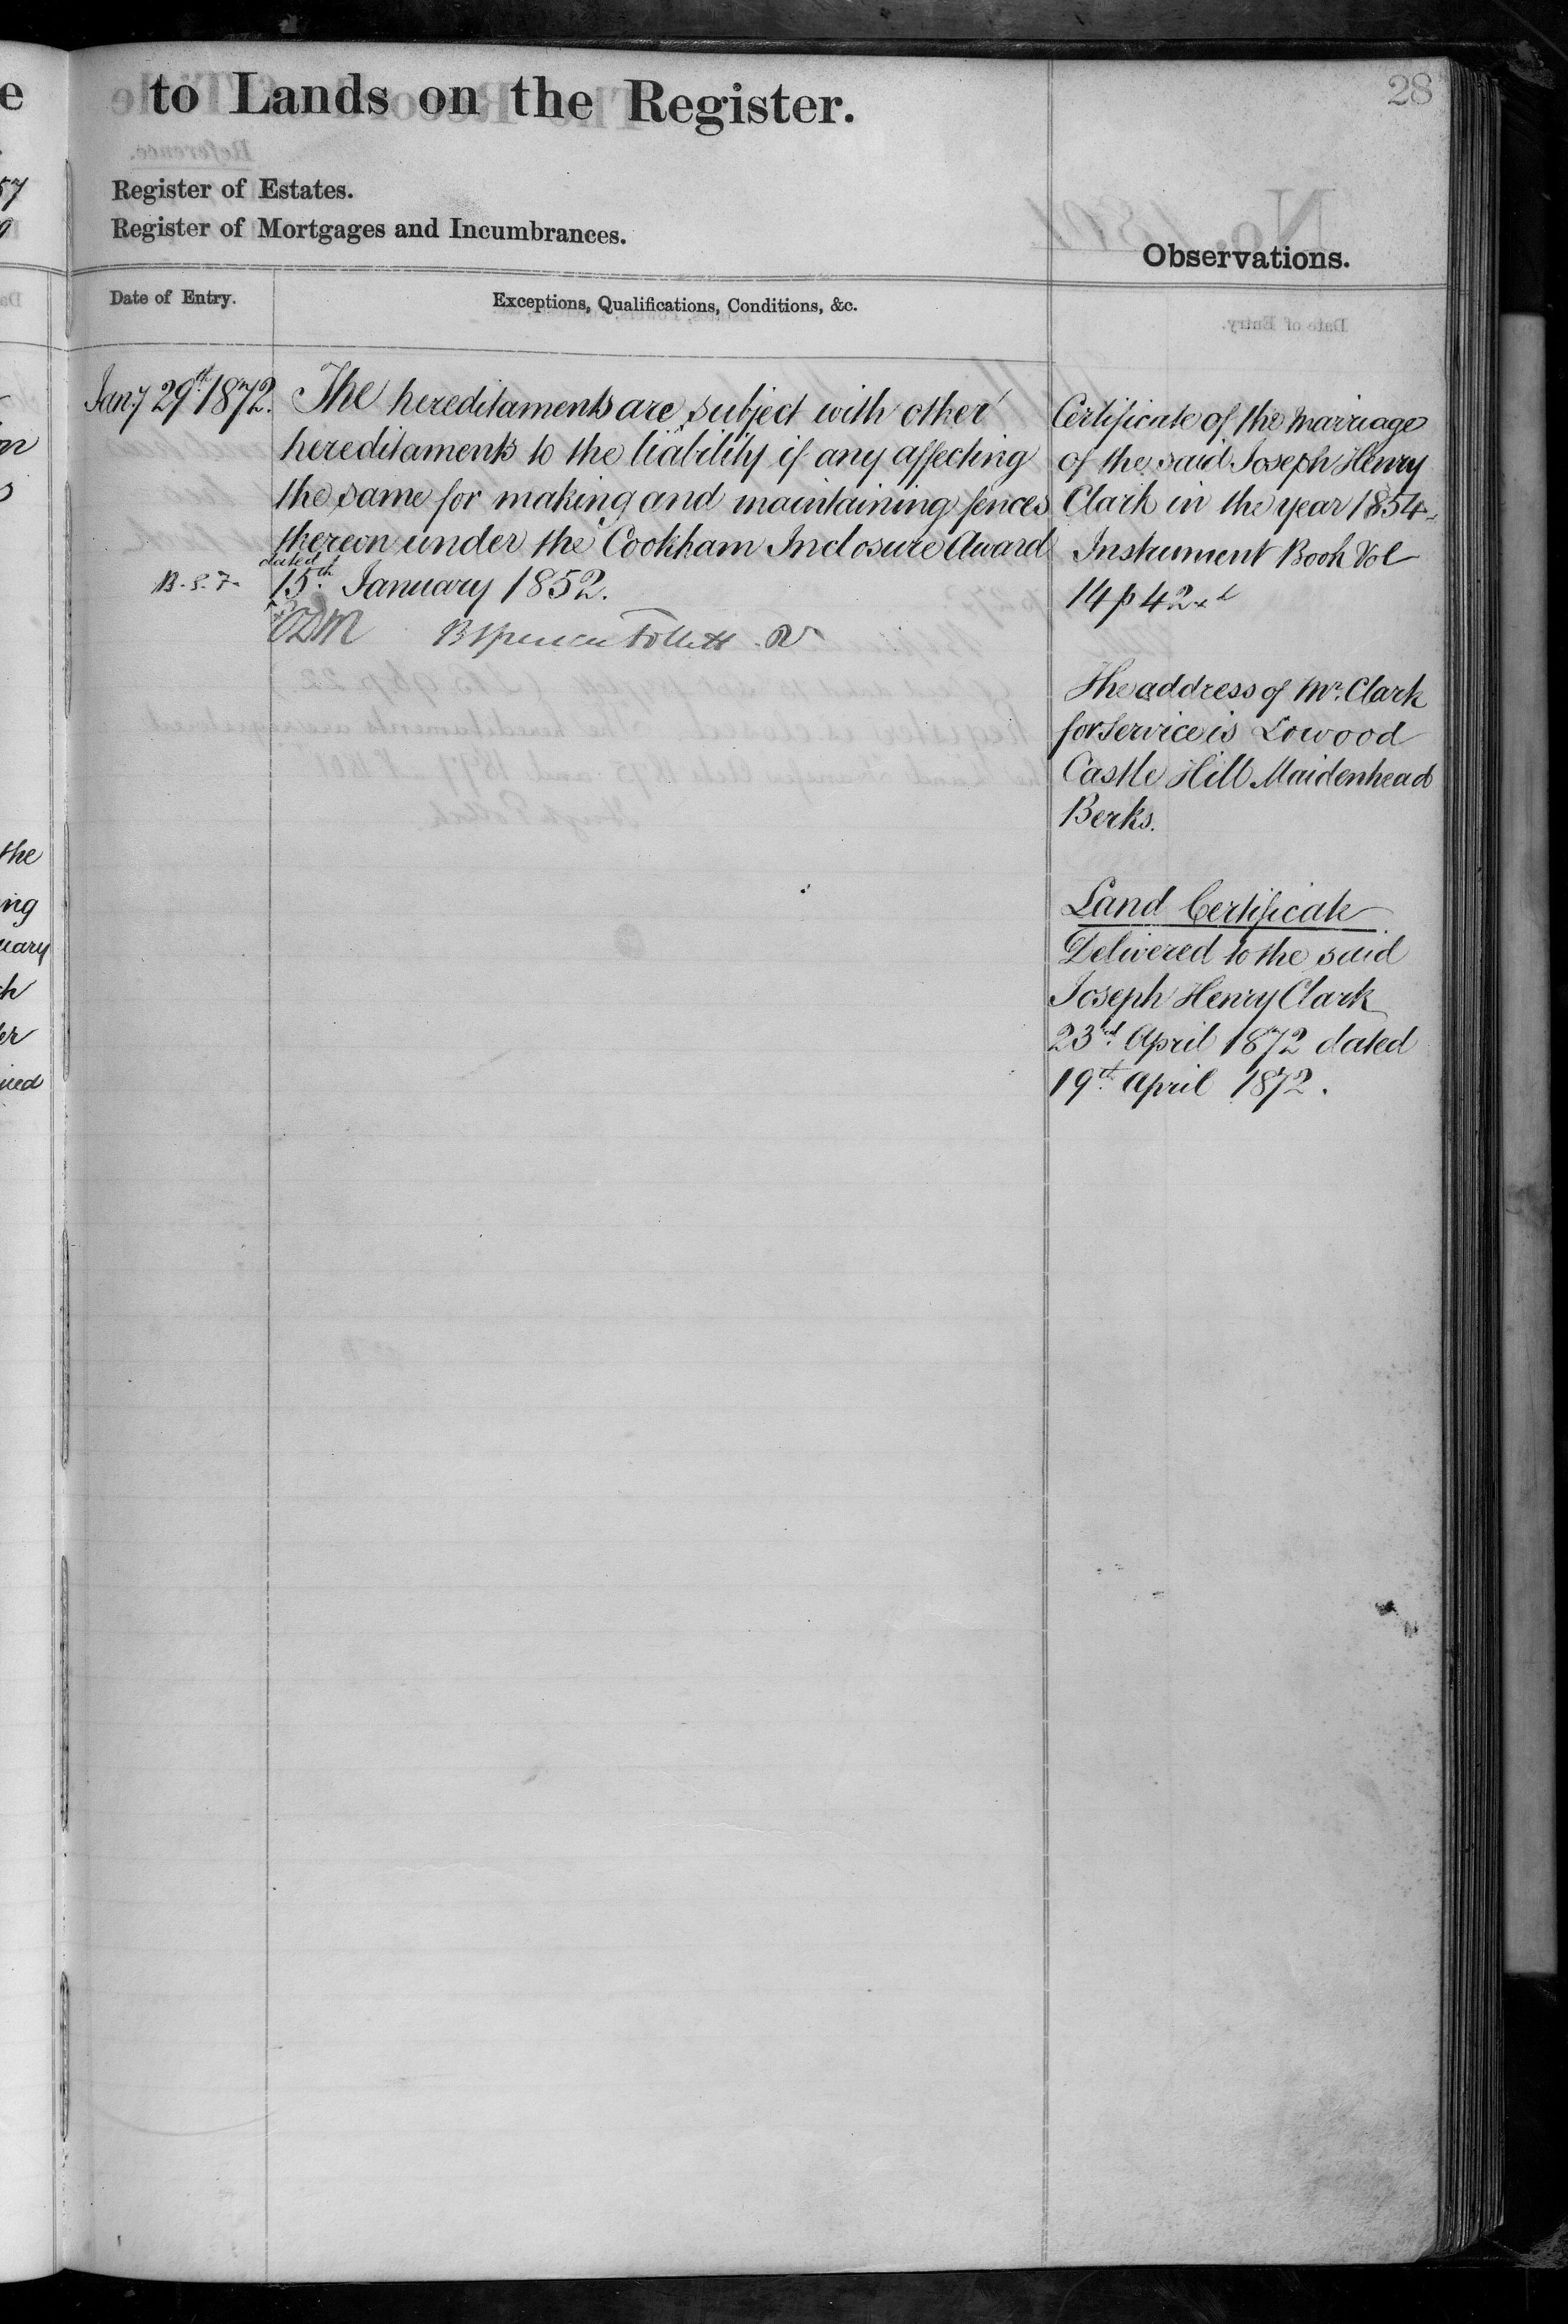 28
to Lands on the Register.
Register of Estates.
Register of Mortgages and Incumbrances.
Observations.
Date of Entry.
Exceptions, Qualifications, Conditions, &c.
Jany 29th 1872.
The hereditaments are subject with other
hereditaments to the liability if any affecting
the same for making and maintaining fences
thereon under the Cookham Inclosure Award
dated
B.S.F.
15th January 1852.
B Spencer Follett
Certificate of the marriage
of the said Joseph Henry
Clark in the year 1854
Instrument Book Vol
14 p 42
The address of Mr. Clark
for service is Lowood
Castle Hill Maidenhead
Berks.
Land Certificate
Delivered to the said
Joseph Henry Clark
23rd April 1872 dated
19th April 1872.
57
the
ing
uary
ch
er